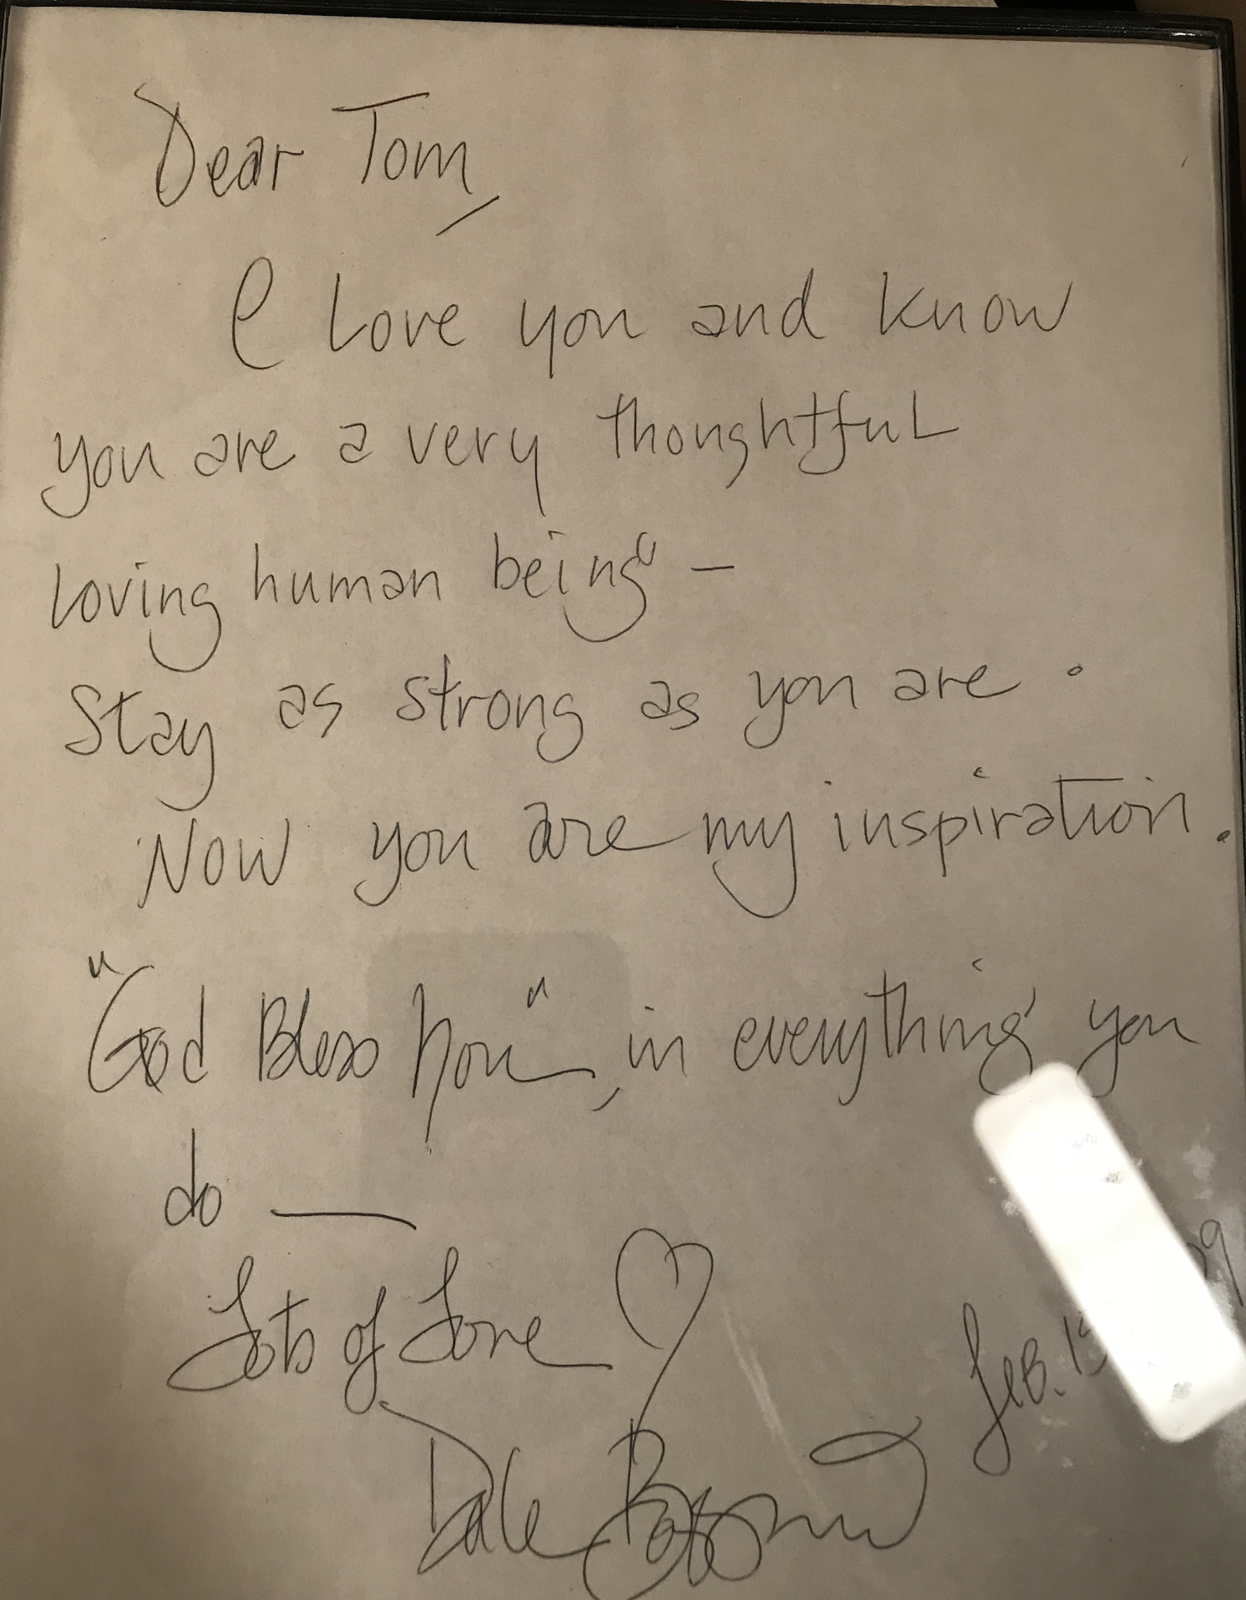 Dear Tom,
I Love you and know
you are a very thoughtful
loving human being" –
Stay as strong as you are .
Now you are my inspiration.
"God Bless You", in everything you
do —
Lots of Love ♡
Feb. 15
Dale